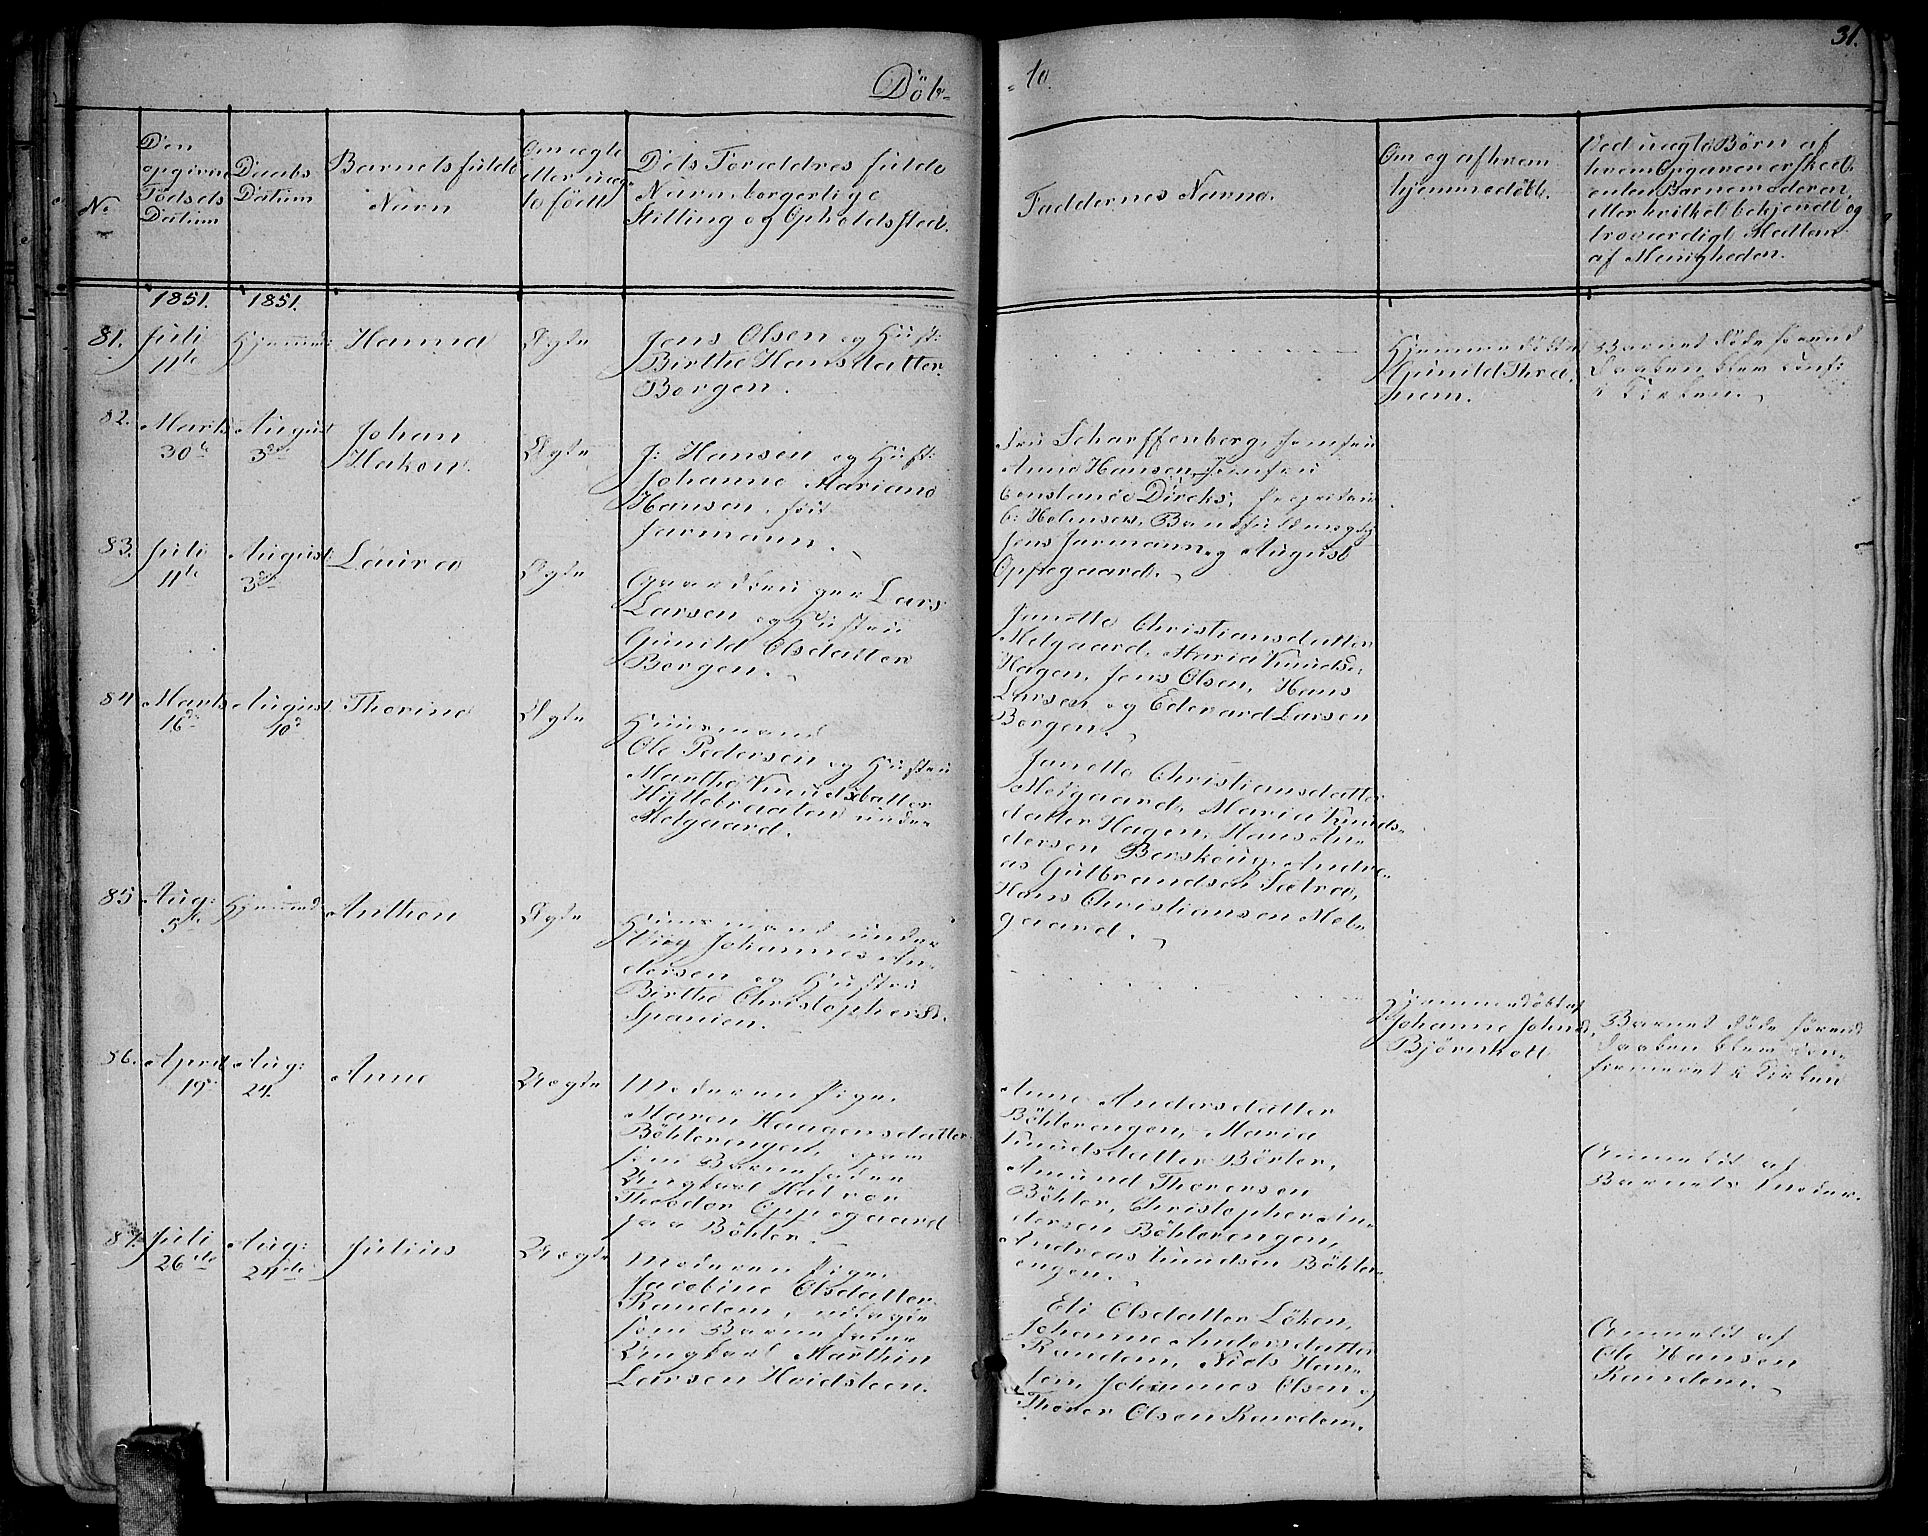 31.
Döb-
-te
No
Den
opgivne
Födsels
Datum
Daabs
Datum
Barnets fulde
Navn
Om ægte
eller uæg-
te födt
Dets Forældres fulde
Navn, borgerlige
Stilling og Opholdssted.
Faddernes Navne.
Om og af hvem
hjemmedöbt.
Ved uægte Börn af
hvem Opgaven er skeet
enten Barnemoderen
eller hvilket bekjendt og
troværdigt Medlem
af Menigheden.
1851.
1851.
81.
Juli
11te
Hjemmed:
Hanna
Ægte
Jens Olsen og Hust:
Birthe Hansdatter
Borgen.
Hjemmedöbt af
Gunild Thro
Barnet döde forend
Daaben blev conf:
i Kirken.
82.
Marts
30te
August
3die
Johan
Hakon.
Ægte
J: Hansen og Hust:
Johanne Mariane
Hansen, föd
Jarmann.
Fru Scharffenberg, Jomfru
Anne Hansen, Jomfru
Constance Dircks,
C: Holmsen,
Jens Jarmann og August
Oppegaard.
83.
Juli
11te
August
3die
Laura
Ægte
Gaardbruger Lars
Larsen og Hustru
Gunild Olsdatter
Borgen.
Janette Christiansdatter
Melgaard, Maria Knudsd.
Hagen, Jens Olsen, Hans
Larsen og Edevard Larsen
Borgen.
84.
Marts
16de
August
10de
Thorine
Ægte
Huusmand
Ole Pedersen og Hustru
Marthe Knudsdatter
Hyttebraaten under
Melgaard.
Janette Christiansdatter
Melgaard, Maria Knuds-
datter Hagen, Hans An-
dersen Berskoug, Andre-
as Gulbrandsen Sætra,
Hans Christiansen Mel-
gaard.
85
Aug:
5te
Hjemmed:
Anthon
Ægte
Huusmand under
Johannes An-
dersen og Hustru
Birthe Christophersd.
Spanien.
Hjemmedöbt af
Johanne Johnsd.
Björnskott
Barnet döde förend
Daaben blev con-
firmeret i Kirken
86.
April
19de
Aug:
24.
Anne
Uægte
Moderen Pige
Maren Haagensdatter
Böhlerengen,
som Barnefader
Ungkarl Halvor
Theodor Oppegaard
paa Böhler.
Anne Andersdatter
Böhlerengen, Maria
Knudsdatter Börter,
Amund Thoresen
Böhler, Christopher An-
dersen Böhlerengen,
Andreas Knudsen Böhler-
engen.
Anmeldt af
Barnets Moder.
87.
Juli
26de
Aug:
24de
Julius
Uægte
Moderen Pige
Jacobine Olsdatter
Randem, udlagde
som Barnefader
Ungkarl Marthin
Larsen Hvidsteen.
Eli Olsdatter Löken,
Johanne Andersdatter
Randem, Niels Han-
sen, Johannes Olsen og
Thorer Olsen Randem.
Anmeldt af
Ole Hansen
Randem.